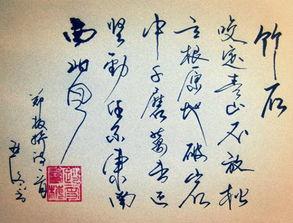 竹石
咬定青山不放松
立根原在破岩
中千磨萬击还
坚劲任尔东南
西北风
郑板桥诗一首